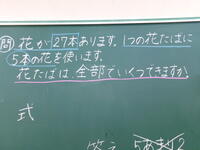 問 花が27本あります。1つの花たばに
5本の花を使います。
花たばは、全部でいくつできますか。
式
答え 5あまり2